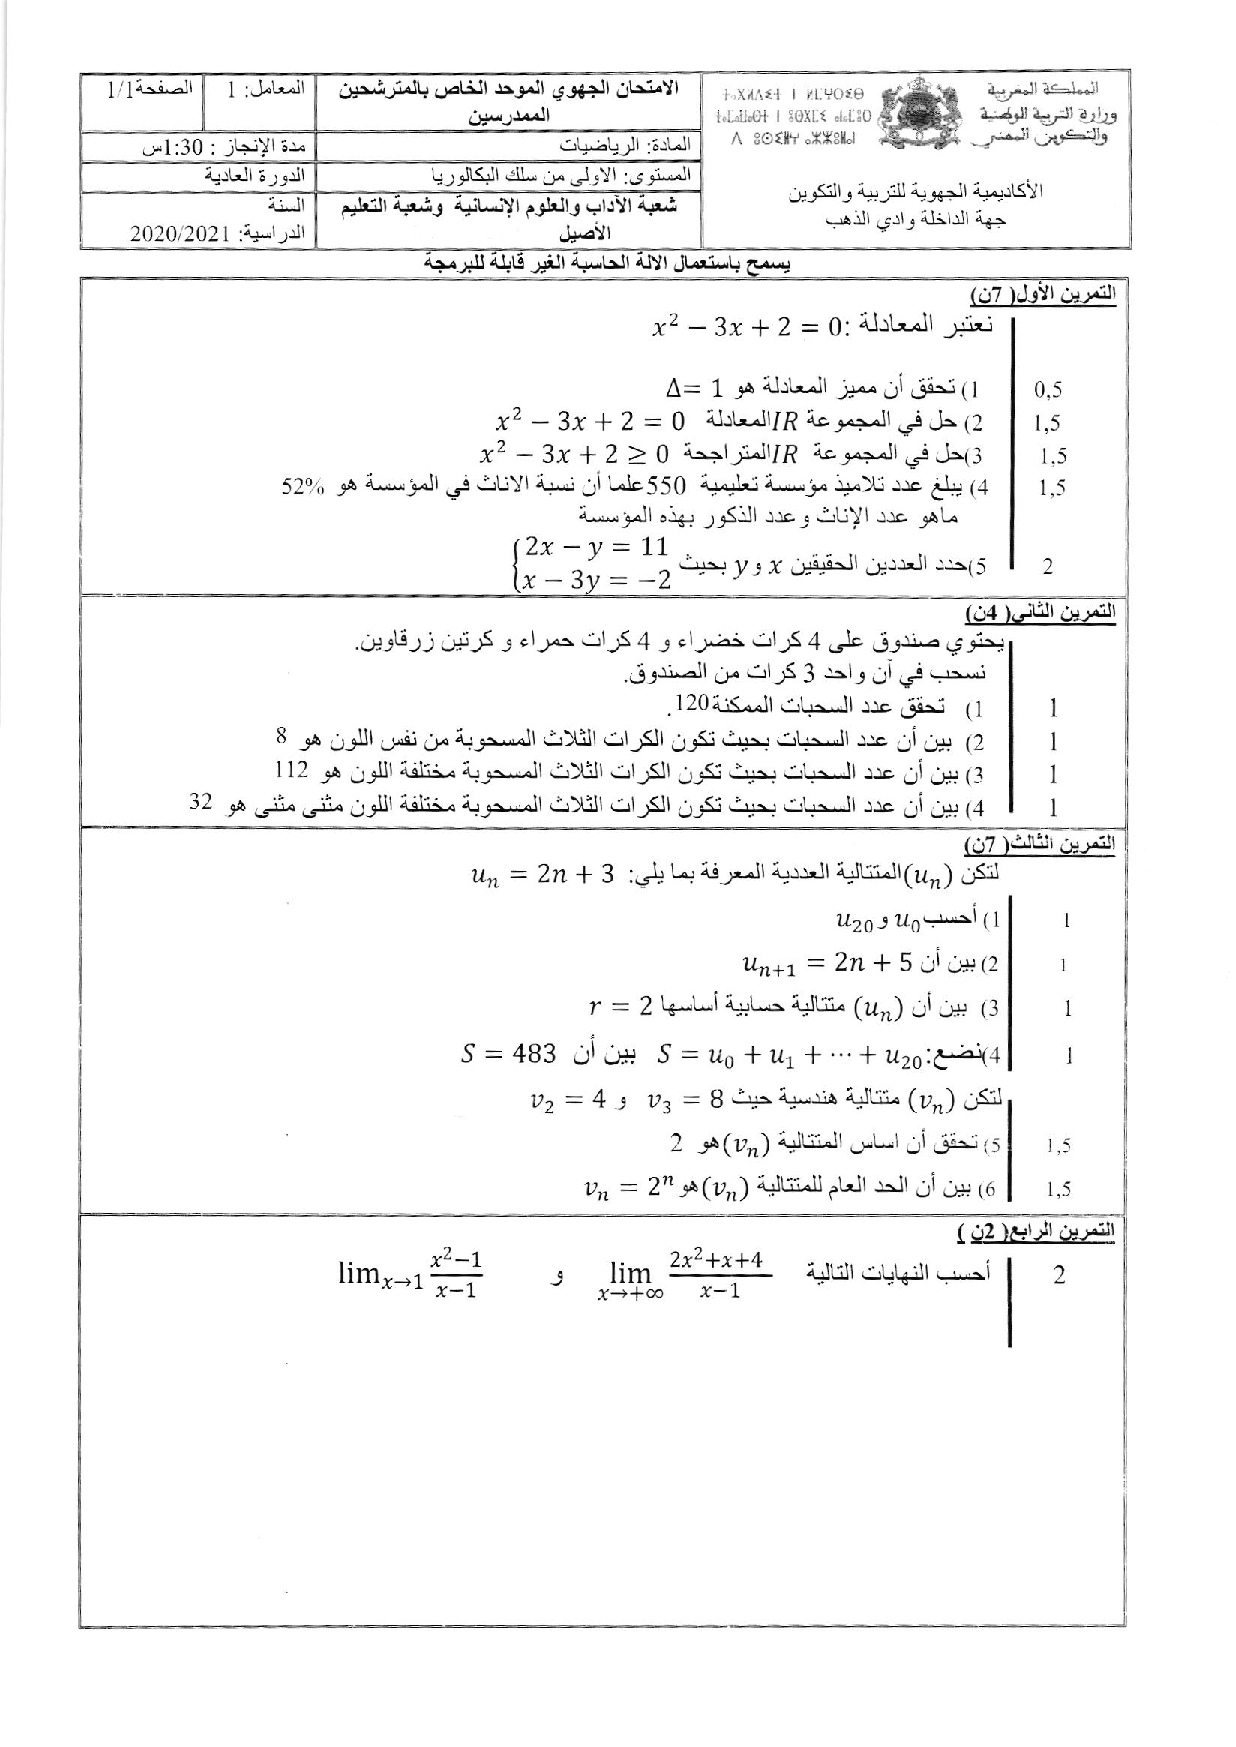 المملكة المغربية
وزارة التربية الوطنية
والتكوين المهني
الأكاديمية الجهوية للتربية والتكوين
جهة الداخلة وادي الذهب
الامتحان الجهوي الموحد الخاص بالمترشحين الممدرسين
المعامل: 1
الصفحة1/1
المادة: الرياضيات
مدة الإنجاز : 1:30س
المستوى: الاولى من سلك البكالوريا
الدورة العادية
شعبة الآداب والعلوم الإنسانية وشعبة التعليم الأصيل
السنة الدراسية: 2020/2021
يسمح باستعمال الالة الحاسبة الغير قابلة للبرمجة
التمرين الأول( 7ن)
نعتبر المعادلة: x² − 3x + 2 = 0
0,5 1) تحقق أن مميز المعادلة هو Δ= 1
1,5 2) حل في المجموعة IR المعادلة x² − 3x + 2 = 0
1,5 3)حل في المجموعة IR المتراجحة x² − 3x + 2 ≥ 0
1,5 4) يبلغ عدد تلاميذ مؤسسة تعليمية 550 علما أن نسبة الاناث في المؤسسة هو 52%
ماهو عدد الإناث وعدد الذكور بهذه المؤسسة
2 5)حدد العددين الحقيقين x و y بحيث {2x − y = 11
x − 3y = −2
التمرين الثاني( 4ن)
يحتوي صندوق على 4 كرات خضراء و 4 كرات حمراء و كرتين زرقاوين.
نسحب في آن واحد 3 كرات من الصندوق.
1 1) تحقق عدد السحبات الممكنة 120.
1 2) بين أن عدد السحبات بحيث تكون الكرات الثلاث المسحوبة من نفس اللون هو 8
1 3) بين أن عدد السحبات بحيث تكون الكرات الثلاث المسحوبة مختلفة اللون هو 112
1 4) بين أن عدد السحبات بحيث تكون الكرات الثلاث المسحوبة مختلفة اللون مثنى مثنى هو 32
التمرين الثالث( 7ن)
لتكن (uₙ)المتتالية العددية المعرفة بما يلي: uₙ = 2n + 3
1 1) أحسب u₀ و u₂₀
1 2) بين أن uₙ₊₁ = 2n + 5
1 3) بين أن (uₙ) متتالية حسابية أساسها r = 2
1 4)نضع: S = u₀ + u₁ + ⋯ + u₂₀ بين أن S = 483
لتكن (vₙ) متتالية هندسية حيث v₃ = 8 و v₂ = 4
1,5 5) تحقق أن اساس المتتالية (vₙ)هو 2
1,5 6) بين أن الحد العام للمتتالية (vₙ)هو vₙ = 2ⁿ
التمرين الرابع( 2ن )
2 أحسب النهايات التالية lim x→+∞ (2x²+x+4)/(x−1) و lim x→1 (x²−1)/(x−1)